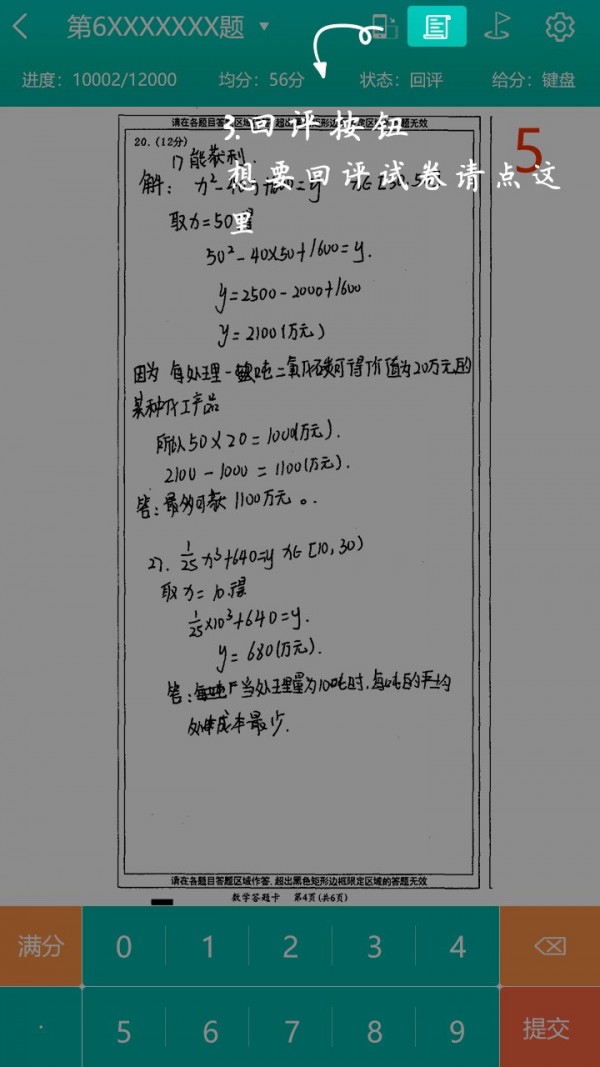 第6XXXXXXX题
进度: 10002/12000 均分: 56分 状态: 回评 给分: 键盘
请在各题目答题区域 超出 矩形边 定区域的答题无效
3.回评按钮
想要回评试卷请点这
里
5
20. (12分)
能获利.
解:
取x=50
50²-40×50+1600=y.
y=2500-2000+1600
y=2100(万元)
因为 每处理一 吨二氧化碳可得价值为20万元的
某种化工产品
所以50×20=1000(万元).
2100-1000=1100(万元).
答:最多可 1100万元。
1/25 x³+640=y x∈[10,30)
取x=10.得
1/25×10³+640=y.
y=680(万元).
答: 当处理量为10吨时,每吨的平均
处理成本最少.
请在各题目答题区域作答,超出黑色矩形边框限定区域的答题无效
数学答题卡 第4页(共6页)
满分 0 1 2 3 4
. 5 6 7 8 9 提交